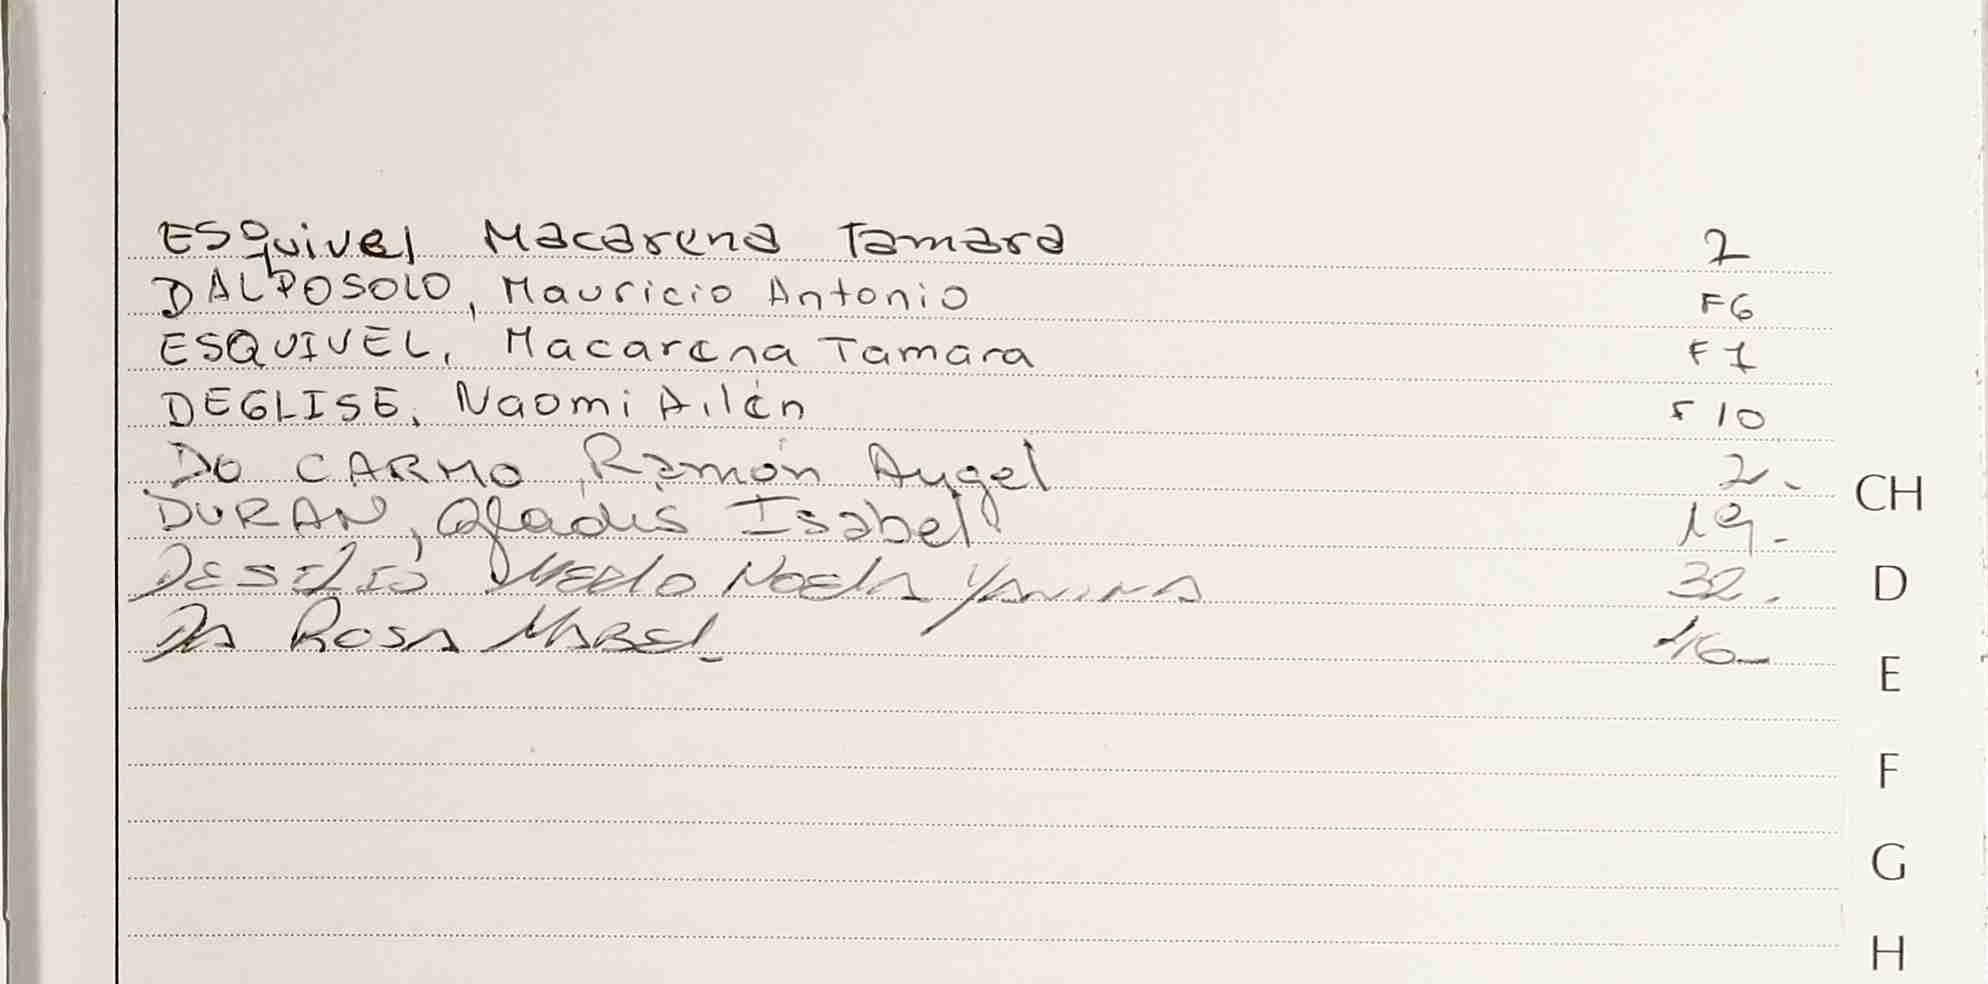 ESquivel Macarena Tamara 2
DALPOSOLO, Mauricio Antonio F6
ESQUIVEL, Macarena Tamara F7
DEGLISE, Naomi Ailén F10
DO CARMO, Ramón Angel 2.-
CH
DURAN, Gladis Isabel 19.-
Noelia Yanina 32.-
D
DA ROSA MABEL 46-
E
F
G
H